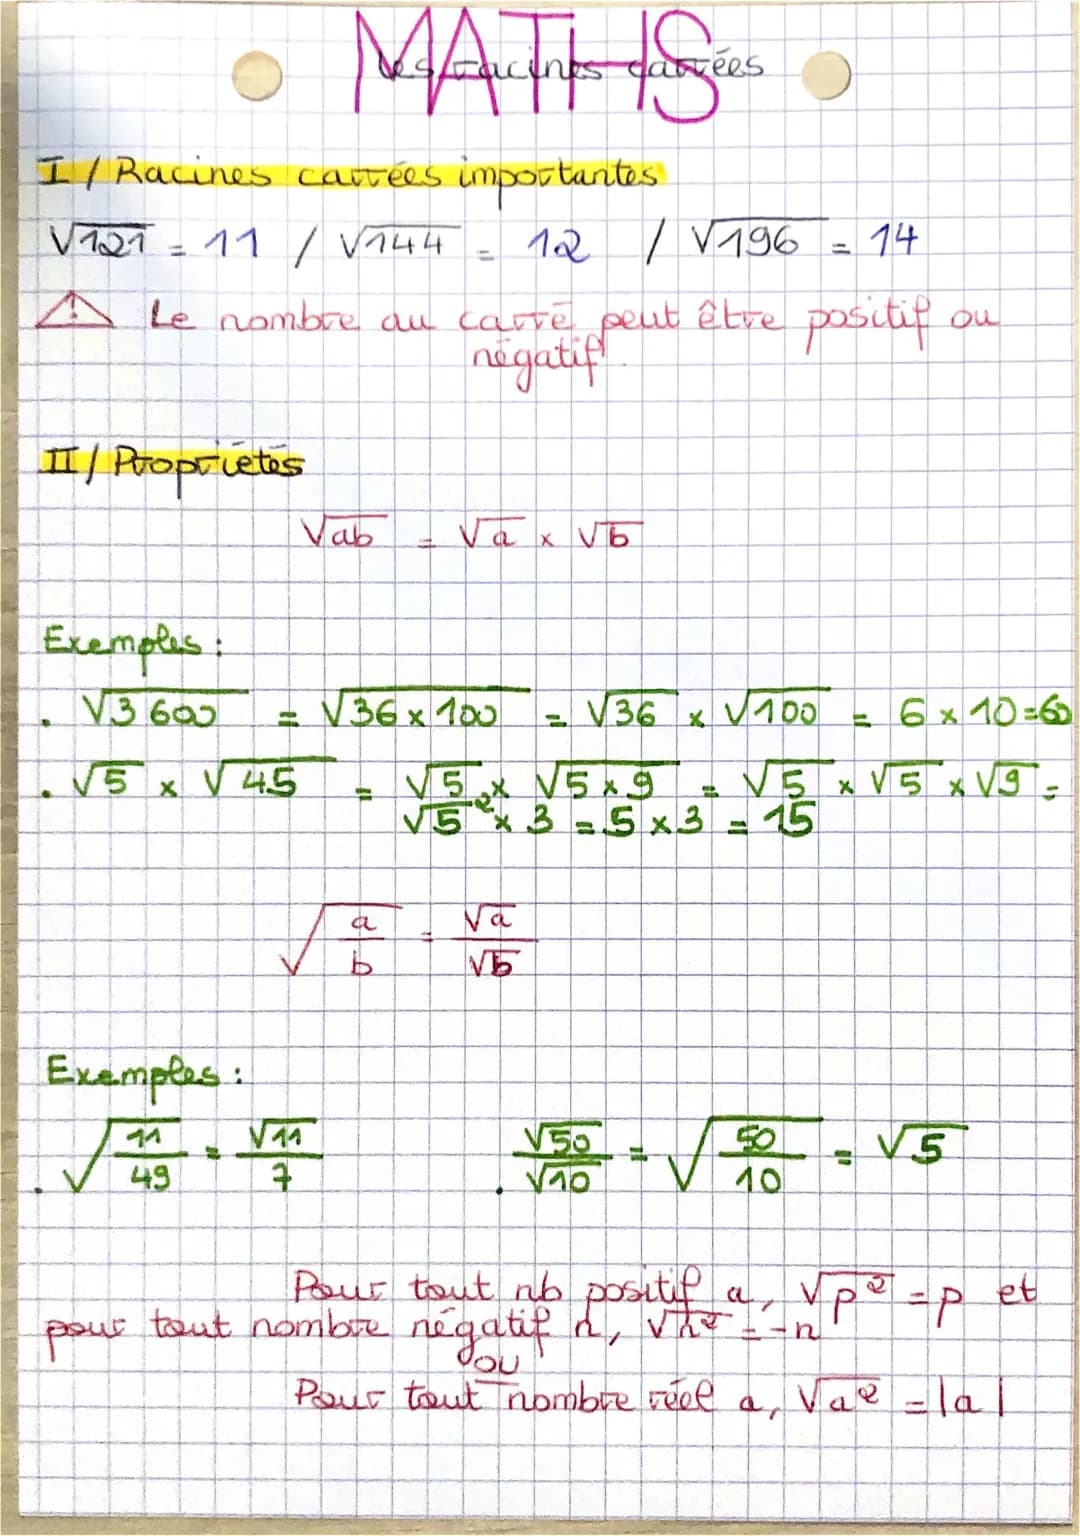 MATHS
Les racines carrées
I / Racines carrées importantes
√121 = 11 / √144 = 12 / √196 = 14
⚠ Le nombre au carré peut être positif ou
négatif.
II / Propriétés
√ab = √a × √b
Exemples :
. √3 600 = √36 × 100 = √36 × √100 = 6 × 10 = 60
. √5 × √45 = √5 × √5 × 9 = √5 × √5 × √9 =
√5² × 3 = 5 × 3 = 15
√(a/b) = √a/√b
Exemples :
. √(11/49) = √11/7 . √50/√10 = √(50/10) = √5
Pour tout nb positif a, √p² = p et
pour tout nombre négatif n, √n² = -n
OU
Pour tout nombre réel a, √a² = |a|